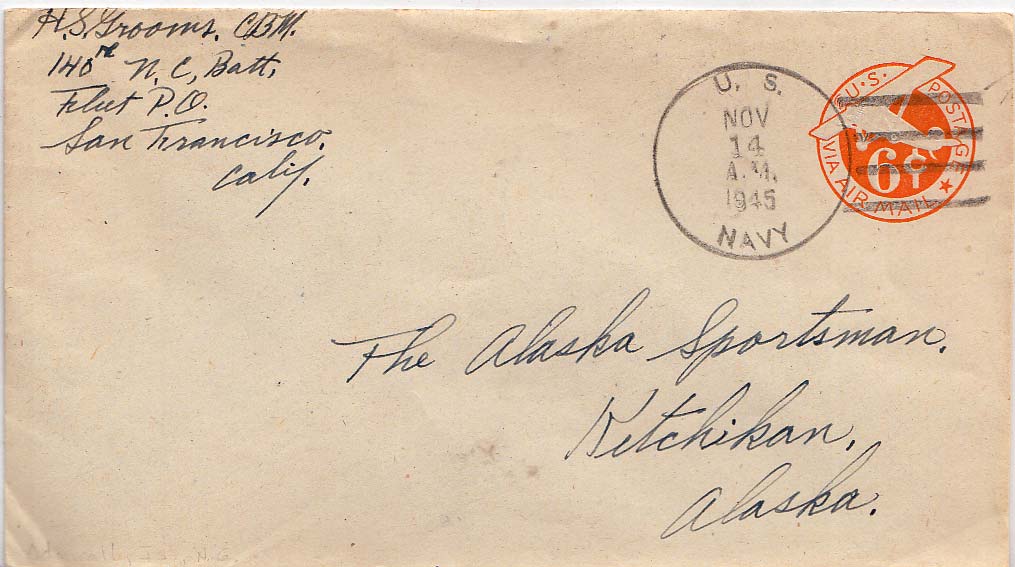 H.S. Grooms. CBM.
140rd N.C. Batt.
Fleet P.O.
San Francisco.
Calif.
U. S.
NOV
14
A.M.
1945
NAVY
U.S. POSTAGE
6¢
VIA AIR MAIL
The Alaska Sportsman.
Ketchikan,
Alaska.